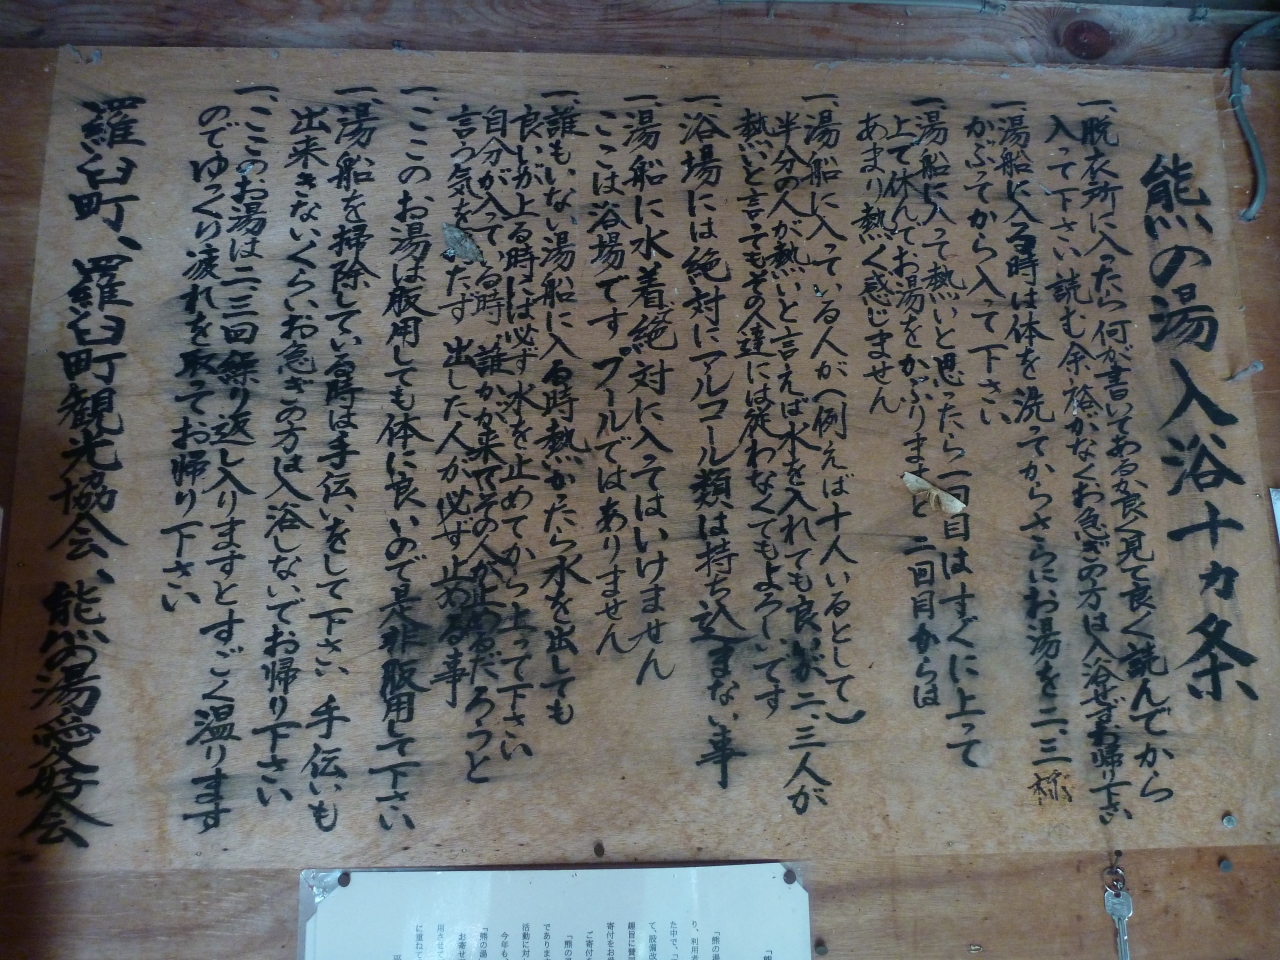 熊の湯入浴十ヵ条
一、脱衣所に入ったら何が書いてあるか良く見て良く読んでから
入って下さい 読む余裕がなくお急ぎの方は入浴せずお帰り下さい
一、湯船に入る時は体を洗ってからさらにお湯を二、三
かぶってから入って下さい
一、湯船に入って熱いと思ったら一回目はすぐに上って
上で休んでお湯をかぶりますと二回目からは
あまり熱く感じません
一、湯船に入っている人が(例えば十人いるとして)
半分の人が熱いと言えば水を入れても良いが二、三人が
熱いと言ってもその人達には従わなくてもよろしいです
一、浴場には絶対にアルコール類は持ち込まない事
一、湯船に水着絶対に入ってはいけません
ここは浴場です。プールではありません
一、誰もいない湯船に入る時熱かったら水を出しても
良いが上る時には必ず水を止めてから上って下さい
自分が入っている時誰かが来てその人が止めるだろうと
言う気を たず 出した人が必ず止める事
一、ここのお湯は服用しても体に良いので是非服用して下さい
一、湯船を掃除している時は手伝いをして下さい 手伝いも
出来きないくらいお急ぎの方は入浴しないでお帰り下さい
一、ここのお湯は二、三回繰り返し入りますとすごく温ります
のでゆっくり疲れを取ってお帰り下さい
羅臼町、羅臼町観光協会、熊の湯愛好会
「熊の湯
り、利用者
た中で、「
て、設備改
趣旨に賛同
寄付をお受
ご寄付を
「熊の湯
であります
活動に対し
今年も、
「熊の湯
お寄せ
用させて
に重ねて